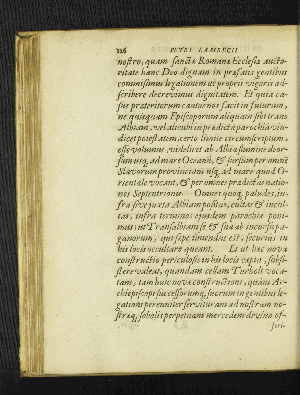 126 PETRI LAMBECII
nostro, quam sanctæ Romanæ Ecclesiæ aucto-
ritate hanc Deo dignam in præfatis gentibus
commisimus legationem ut proprii vigoris ad-
scribere decrevimus dignitatem. Et quia ca-
sus præteritorum cautos nos facit in futurum,
ne quisquam Episcoporum aliquam sibi trans
Albiam, vel alicubi in prædicta parochia vin-
dicet potestatem, certo limite circumscriptam,
esse volumus, videlicet ab Albia flumine deor-
sum usq, ad mare Oceanũ, & sursum per omnẽ
Slavorum provinciam usq, ad mare quod Ori-
entale vocant, & per omnes prædictas natio-
nes Septentrionis. Omnes quoq, paludes, in-
fra sive juxta Albiam positas, cultas & incul-
tas, infra terminos ejusdem parochiæ poni-
mus: ut Transalbiani se & sua ab incursu pa-
ganorum, qui sæpe timendus est, securius in
his locis occultare queant. Et ut hæc nova
constructio periculosis in his locis cœpta, subsi-
stere valeat, quandam cellam Turholt voca-
tam, tam huic novæ constructioni, quàm Ar-
chiepiscopi successorumq, suorum in gentibus le-
gationi perenniter servituram ad nostram no-
stræq, sobolis perpetuam mercedem devino of-
feri-